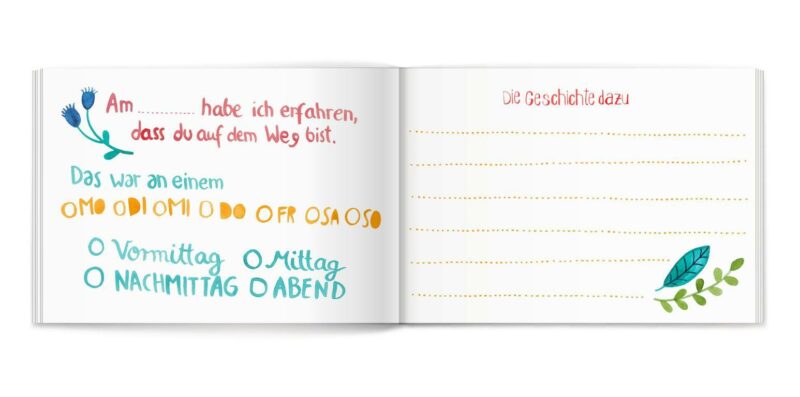 Am .......... habe ich erfahren,
dass du auf dem Weg bist.
Das war an einem
O MO O DI O MI O DO O FR O SA O SO
O Vormittag O Mittag
O NACHMITTAG O ABEND
Die Geschichte dazu